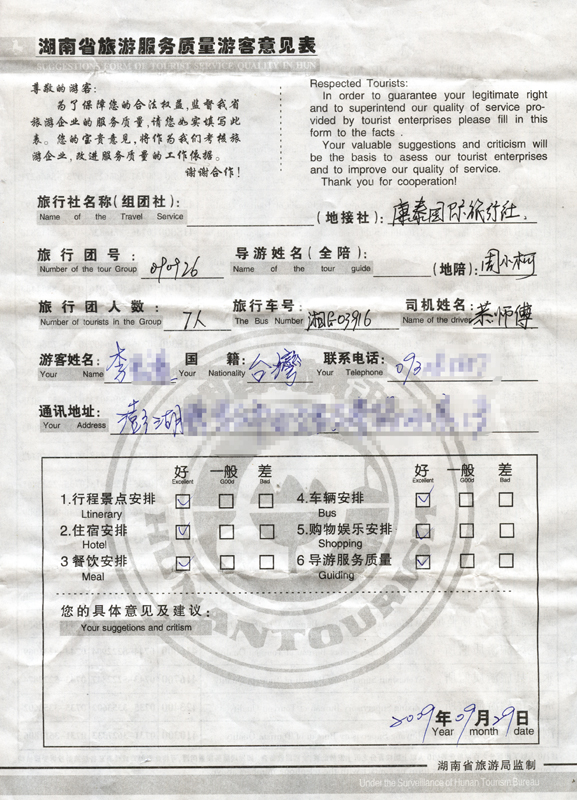 湖南省旅游服务质量游客意见表
SUGGESTIONS FORM OF TOURIST SERVICE QUALITY IN HUN
尊敬的游客:
为了保障您的合法权益,监督我省
旅游企业的服务质量,请您如实填写此
表。您的宝贵意见,将作为我们考核旅
游企业,改进服务质量的工作依据。
谢谢合作!
Respected Tourists:
In order to guarantee your legitimate right
and to superintend our quality of service pro-
vided by tourist enterprises please fill in this
form to the facts .
Your valuable suggestions and criticism will
be the basis to asess our tourist enterprises
and to improve our quality of service.
Thank you for cooperation!
旅行社名称(组团社): (地接社): 康泰国际旅行社.
Name of the Travel Service
旅行团号: 090926 导游姓名(全陪): (地陪): 周小柯
Number of the tour Group Name of the tour guide
旅行团人数: 7人 旅行车号: 湘G03916 司机姓名: 师傅
Number of tourists in the Group The Bus Number Name of the driver
游客姓名: 李 国籍: 台灣 联系电话: 093
Your Name Your Nationality Your Telephone
通讯地址: 澎湖
Your Address
好 一般 差 好 一般 差
Excellent G00d Bad Excellent G00d Bad
1.行程景点安排 4.车辆安排
Ltinerary Bus
2.住宿安排 5.购物娱乐安排
Hotel Shopping
3 餐饮安排 6 导游服务质量
Meal Guiding
您的具体意见及建议:
Your suggetions and critism
HUNAN TOURISM
2009年09月29日
Year month date
湖南省旅游局监制
Under the Surveillance of Hunan Tourism Bureau